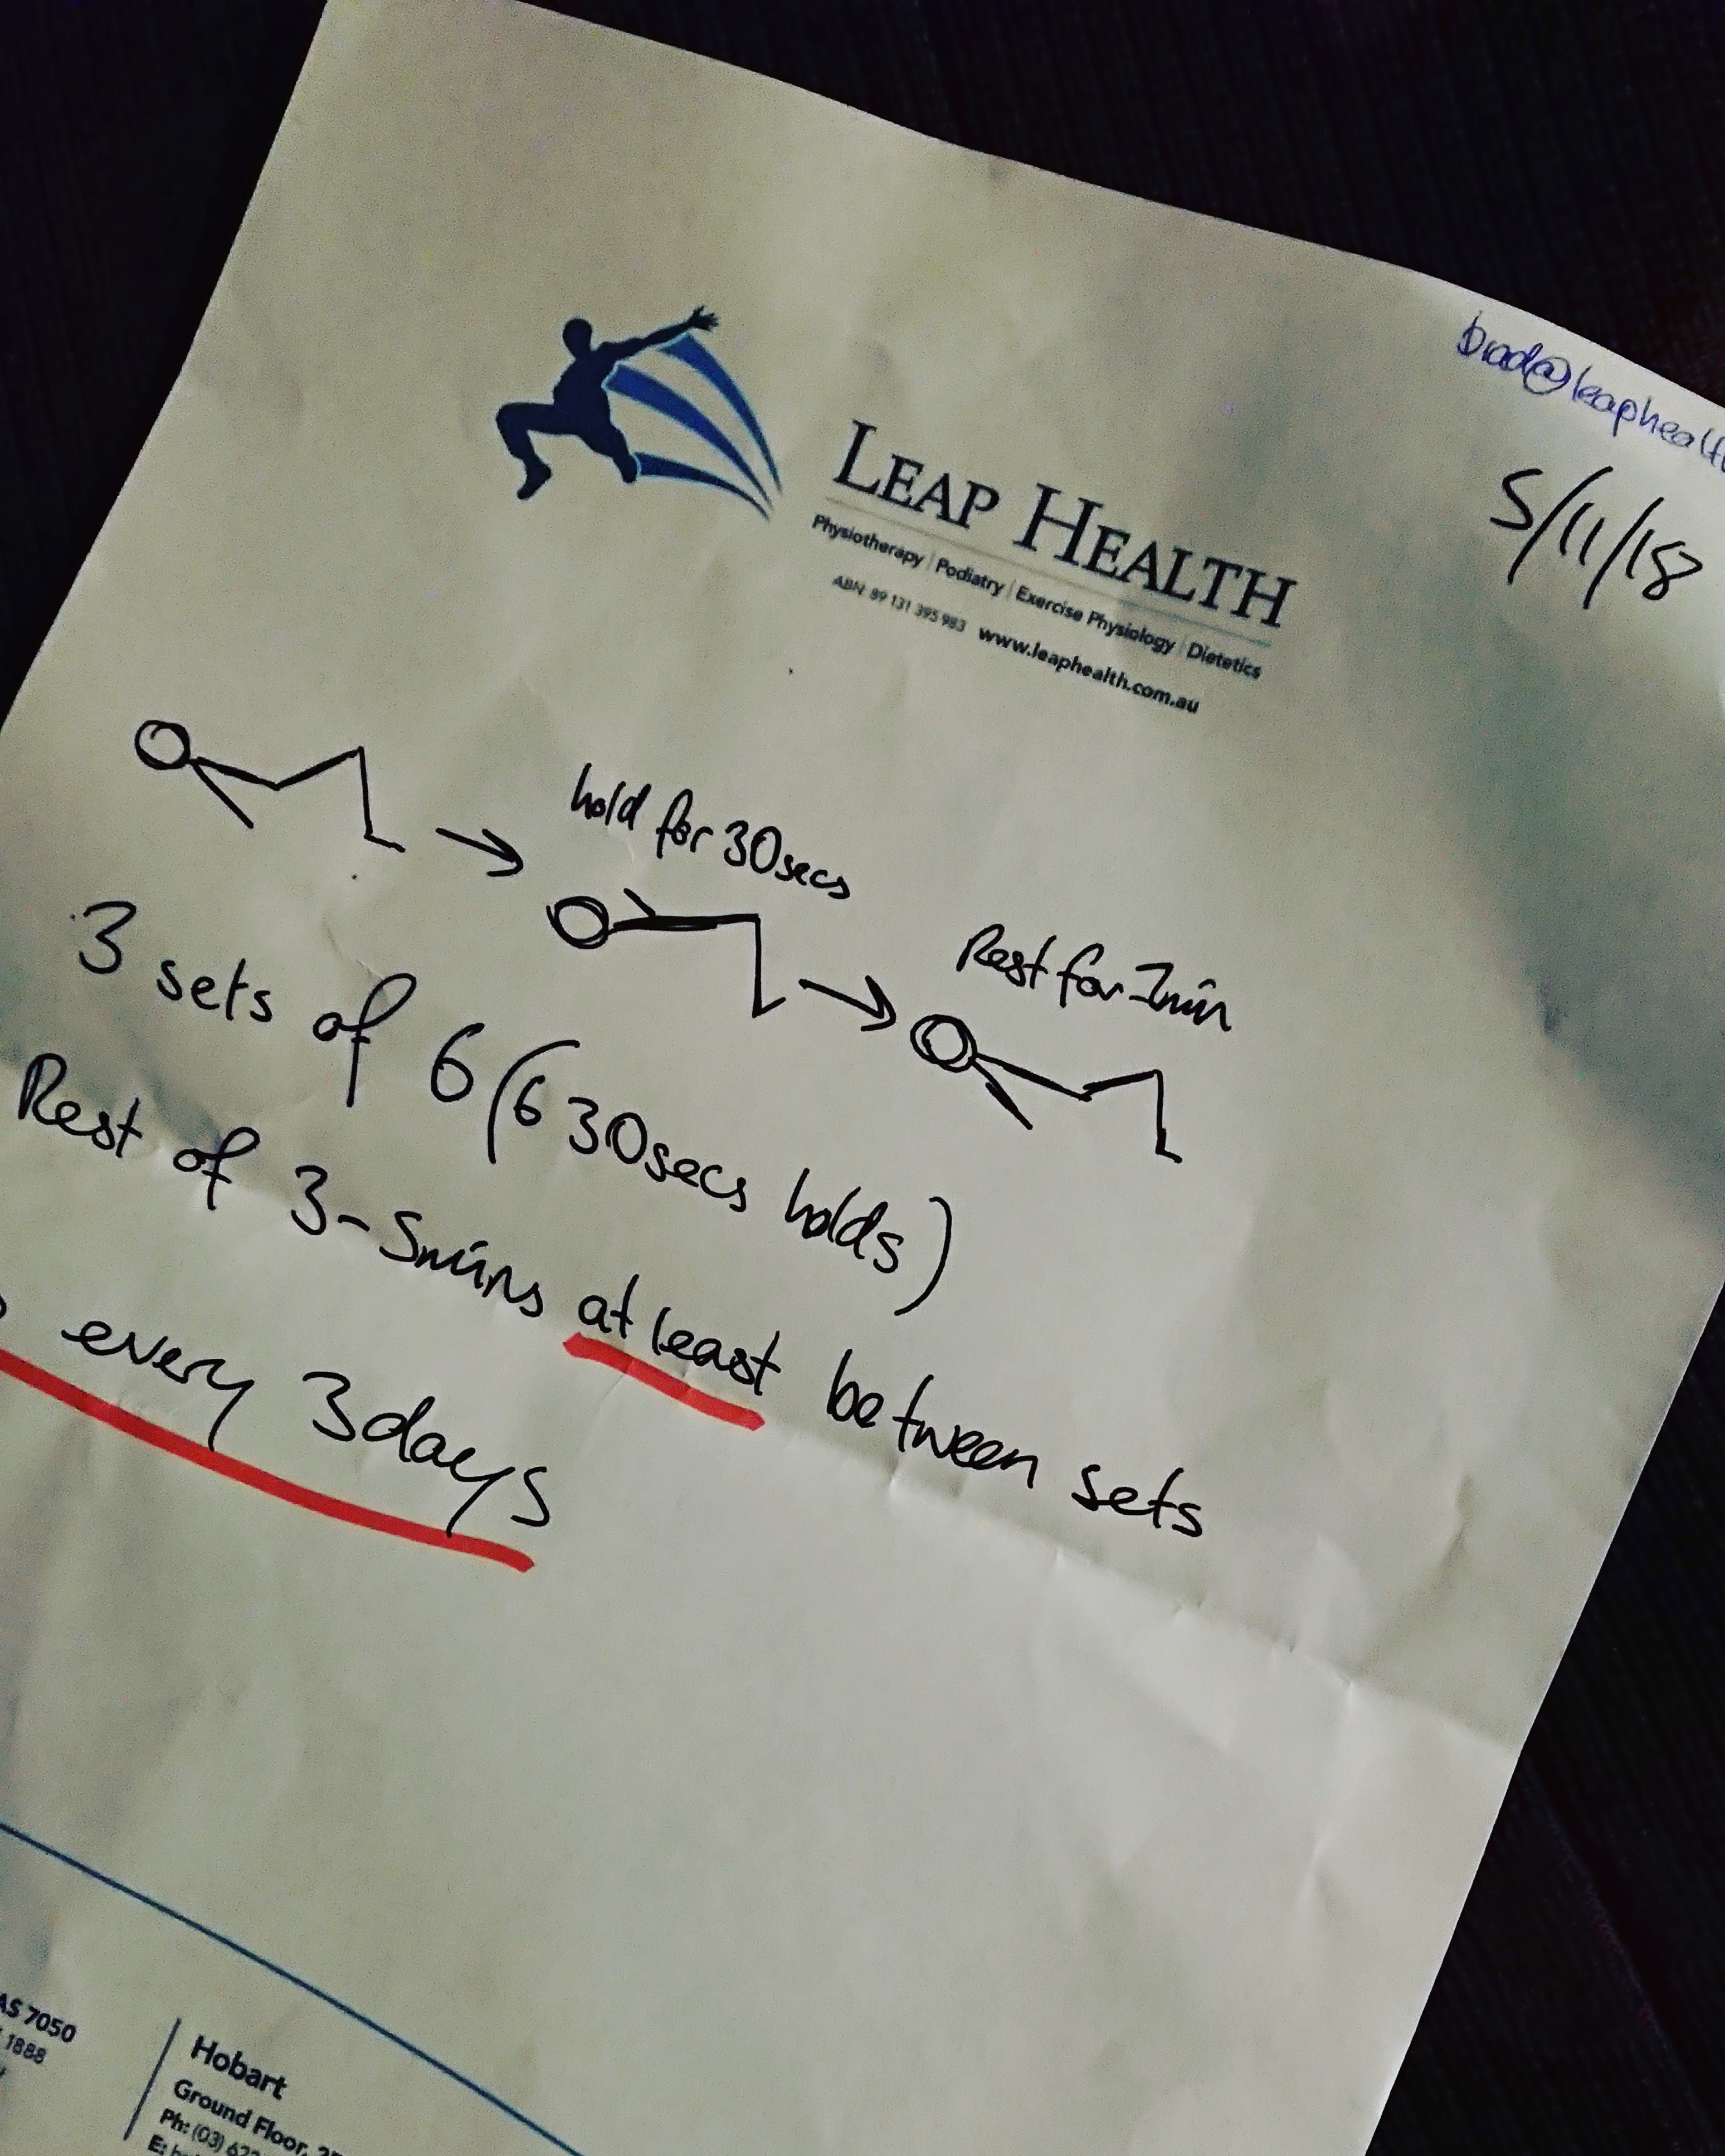 brad@leaphealth
5/11/18
LEAP HEALTH
Physiotherapy | Podiatry | Exercise Physiology | Dietetics
ABN 89 131 395 983 www.leaphealth.com.au
hold for 30secs
Rest for 1min
3 sets of 6 (6 30secs holds)
Rest of 3-5mins at least between sets
every 3days
AS 7050
1888
Hobart
Ground Floor,
Ph: (03) 62
E: